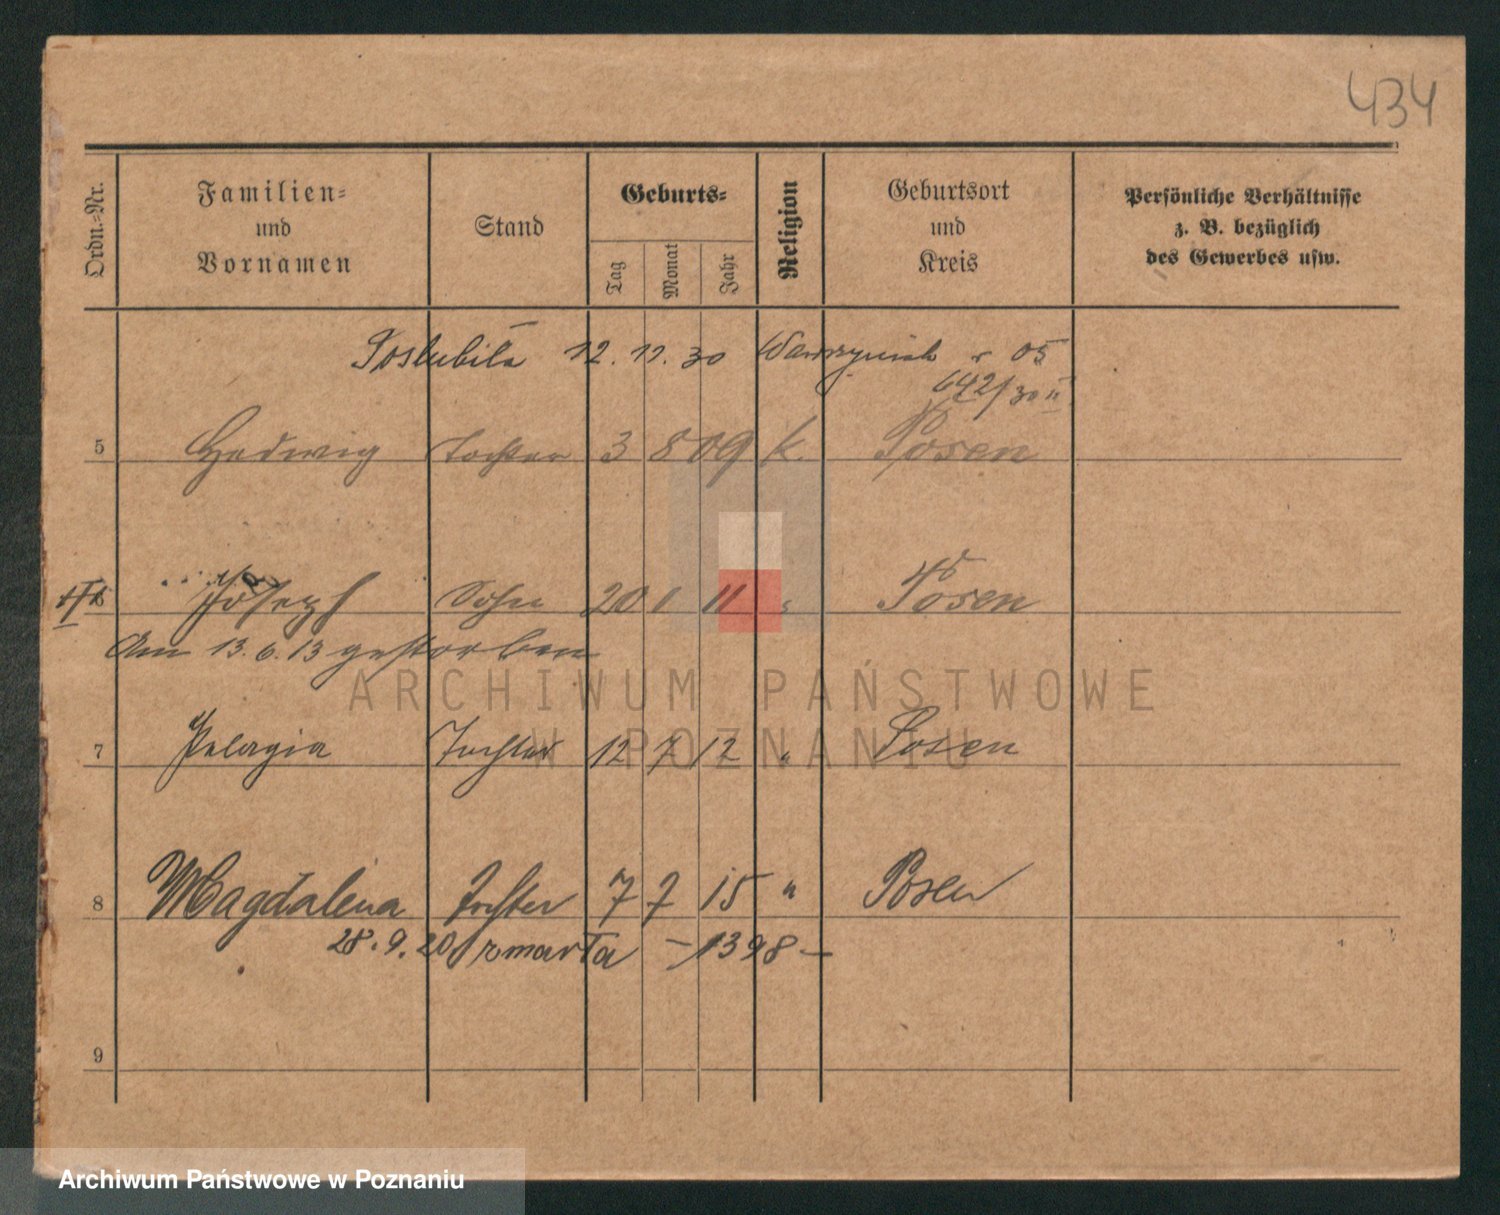 434
Ordn.-Nr.
Familien-
und
Vornamen
Stand
Geburts-
Tag
Monat
Jahr
Religion
Geburtsort
und
Kreis
Persönliche Verhältnisse
z. B. bezüglich
des Gewerbes usw.
Poslubiła 12.11.30 Wawrzyniak r 05
642/30 II
5 Hedwig Tochter 3 8 09 k. Posen
6 Joseph Sohn 20 1 11 " Posen
Am 13.6.13 gestorben
7 Pelagia Tochter 12 7 12 " Posen
8 Magdalena Tochter 7 7 15 " Posen
28.9.20 zmarła – 1398 –
9
ARCHIWUM PAŃSTWOWE
W POZNANIU
Archiwum Państwowe w Poznaniu